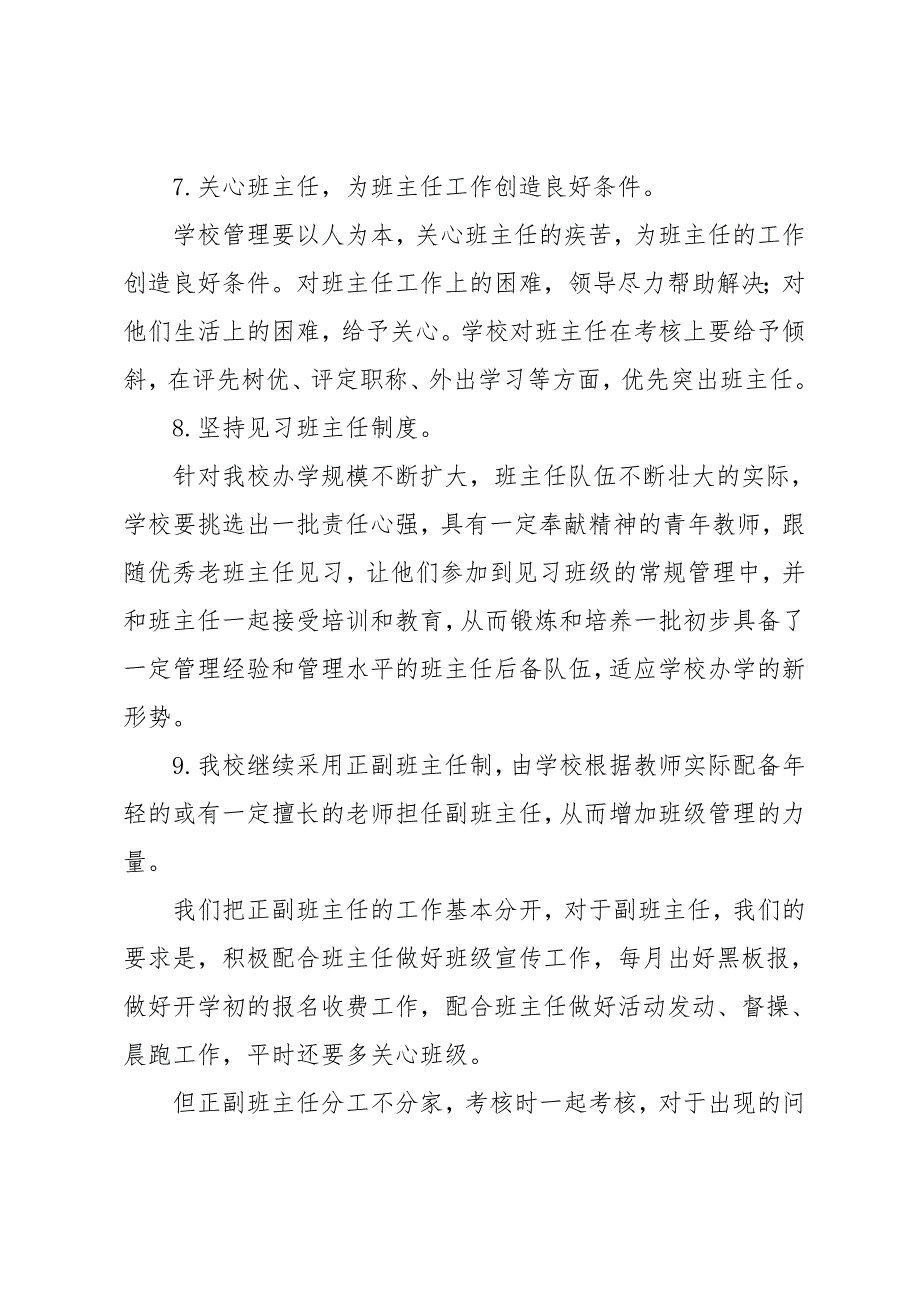 7.关心班主任，为班主任工作创造良好条件。
学校管理要以人为本，关心班主任的疾苦，为班主任的工作
创造良好条件。对班主任工作上的困难，领导尽力帮助解决；对
他们生活上的困难，给予关心。学校对班主任在考核上要给予倾
斜，在评先树优、评定职称、外出学习等方面，优先突出班主任。
8.坚持见习班主任制度。
针对我校办学规模不断扩大，班主任队伍不断壮大的实际，
学校要挑选出一批责任心强，具有一定奉献精神的青年教师，跟
随优秀老班主任见习，让他们参加到见习班级的常规管理中，并
和班主任一起接受培训和教育，从而锻炼和培养一批初步具备了
一定管理经验和管理水平的班主任后备队伍，适应学校办学的新
形势。
9.我校继续采用正副班主任制，由学校根据教师实际配备年
轻的或有一定擅长的老师担任副班主任，从而增加班级管理的力
量。
我们把正副班主任的工作基本分开，对于副班主任，我们的
要求是，积极配合班主任做好班级宣传工作，每月出好黑板报，
做好开学初的报名收费工作，配合班主任做好活动发动、督操、
晨跑工作，平时还要多关心班级。
但正副班主任分工不分家，考核时一起考核，对于出现的问